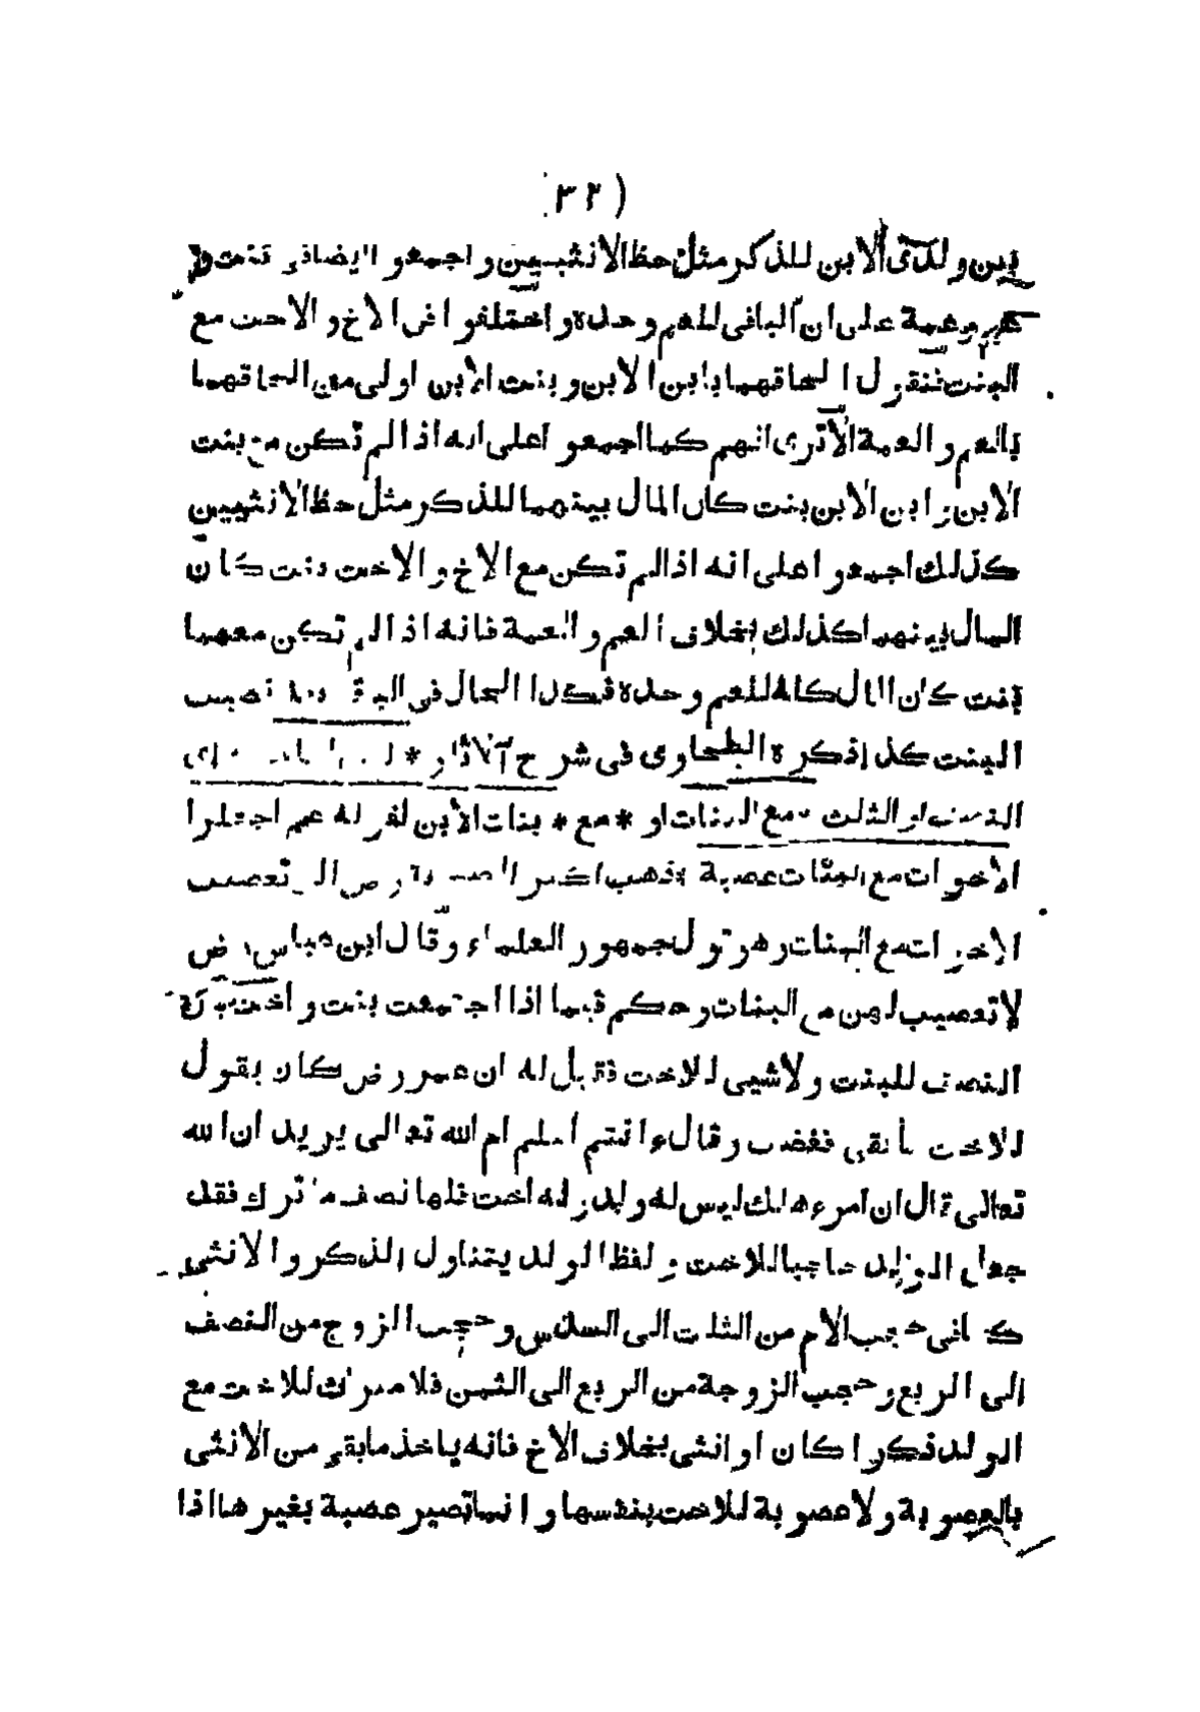 (٣٢
بين ولدى الابن للذكر مثل حظ الانثيين واجمعوا ايضا في بنت و
عم وعمة على ان الباقى للعم وحده واختلفوا فى الاخ والاخت مع
البنت فنقول الحاقهما بابن الابن وبنت الابن اولى من الحاقهما
بالعم والعمة الاترى انهم كما اجمعوا على انه اذا لم تكن مع بنت
الابن وابن الابن بنت كان المال بينهما للذكر مثل حظ الانثيين
كذلك اجمعوا على انه اذا لم تكن مع الاخ والاخت بنت كان
المال بينهما كذلك بخلاف العم والعمة فانه اذا لم تكن معهما
بنت كان المال كله للعم وحده فكذا الحال فى نصيب
البنت كذا ذكره الطحاوى فى شرح الآثار *
النصف او الثلث مع البنات او * مع * بنات الابن لقوله عم اجعلوا
الاخوات مع البنات عصبة فذهب اكثر الى تعصيب
الاخوات مع البنات وهو قول جمهور العلماء وقال ابن عباس رض
لا تعصيب لهن مع البنات وحكم فيما اذا اجتمعت بنت واخت بان
النصف للبنت ولا شيى للاخت فقيل له ان عمر رض كان يقول
للاخت ما بقى فغضب وقال ءانتم اعلم ام الله تعالى يريد ان الله
تعالى قال ان امرء هلك ليس له ولد وله اخت فلها نصف ما ترك فقد
جعل الولد حاجبا للاخت ولفظ الولد يتناول الذكر والانثى
كما فى حجب الام من الثلث الى السدس وحجب الزوج من النصف
الى الربع وحجب الزوجة من الربع الى الثمن فلا ميراث للاخت مع
الولد ذكرا كان او انثى بخلاف الاخ فانه ياخذ ما بقى من الانثى
بالعصوبة ولا عصوبة للاخت بنفسها وانما تصير عصبة بغيرها اذا